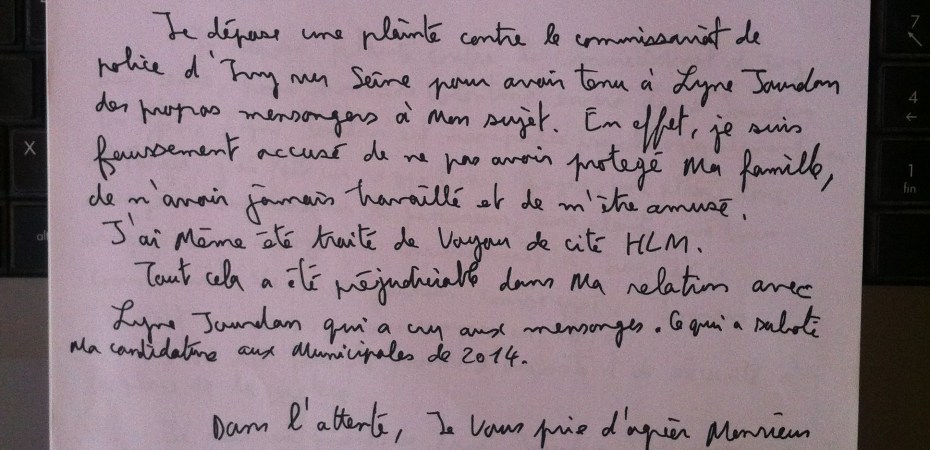 Je dépose une plainte contre le commissariat de
police d'Ivry sur Seine pour avoir tenu à Lyne Jourdan
des propos mensongers à mon sujet. En effet, je suis
faussement accusé de ne pas avoir protegé ma famille,
de n'avoir jamais travaillé et de m'être amusé.
J'ai même été traité de voyou de cité HLM.
Tout cela a été préjudiciable dans ma relation avec
Lyne Jourdan qui a cru aux mensonges. Ce qui a saboté
ma candidature aux Municipales de 2014.
Dans l'attente, Je vous prie d'agréer Monsieur
X
7
4
1
fin